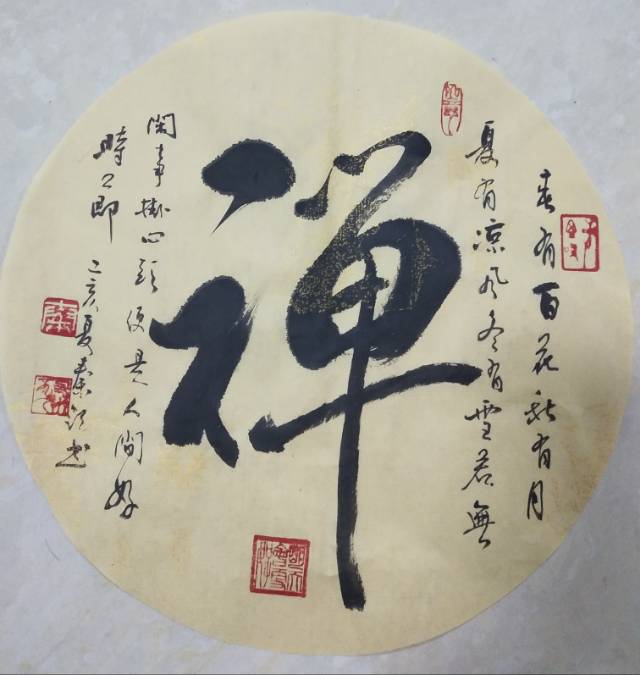 春有百花秋有月
夏有凉风冬有雪若無
禅
闲事掛心头便是人间好
時莭 己亥夏秦书